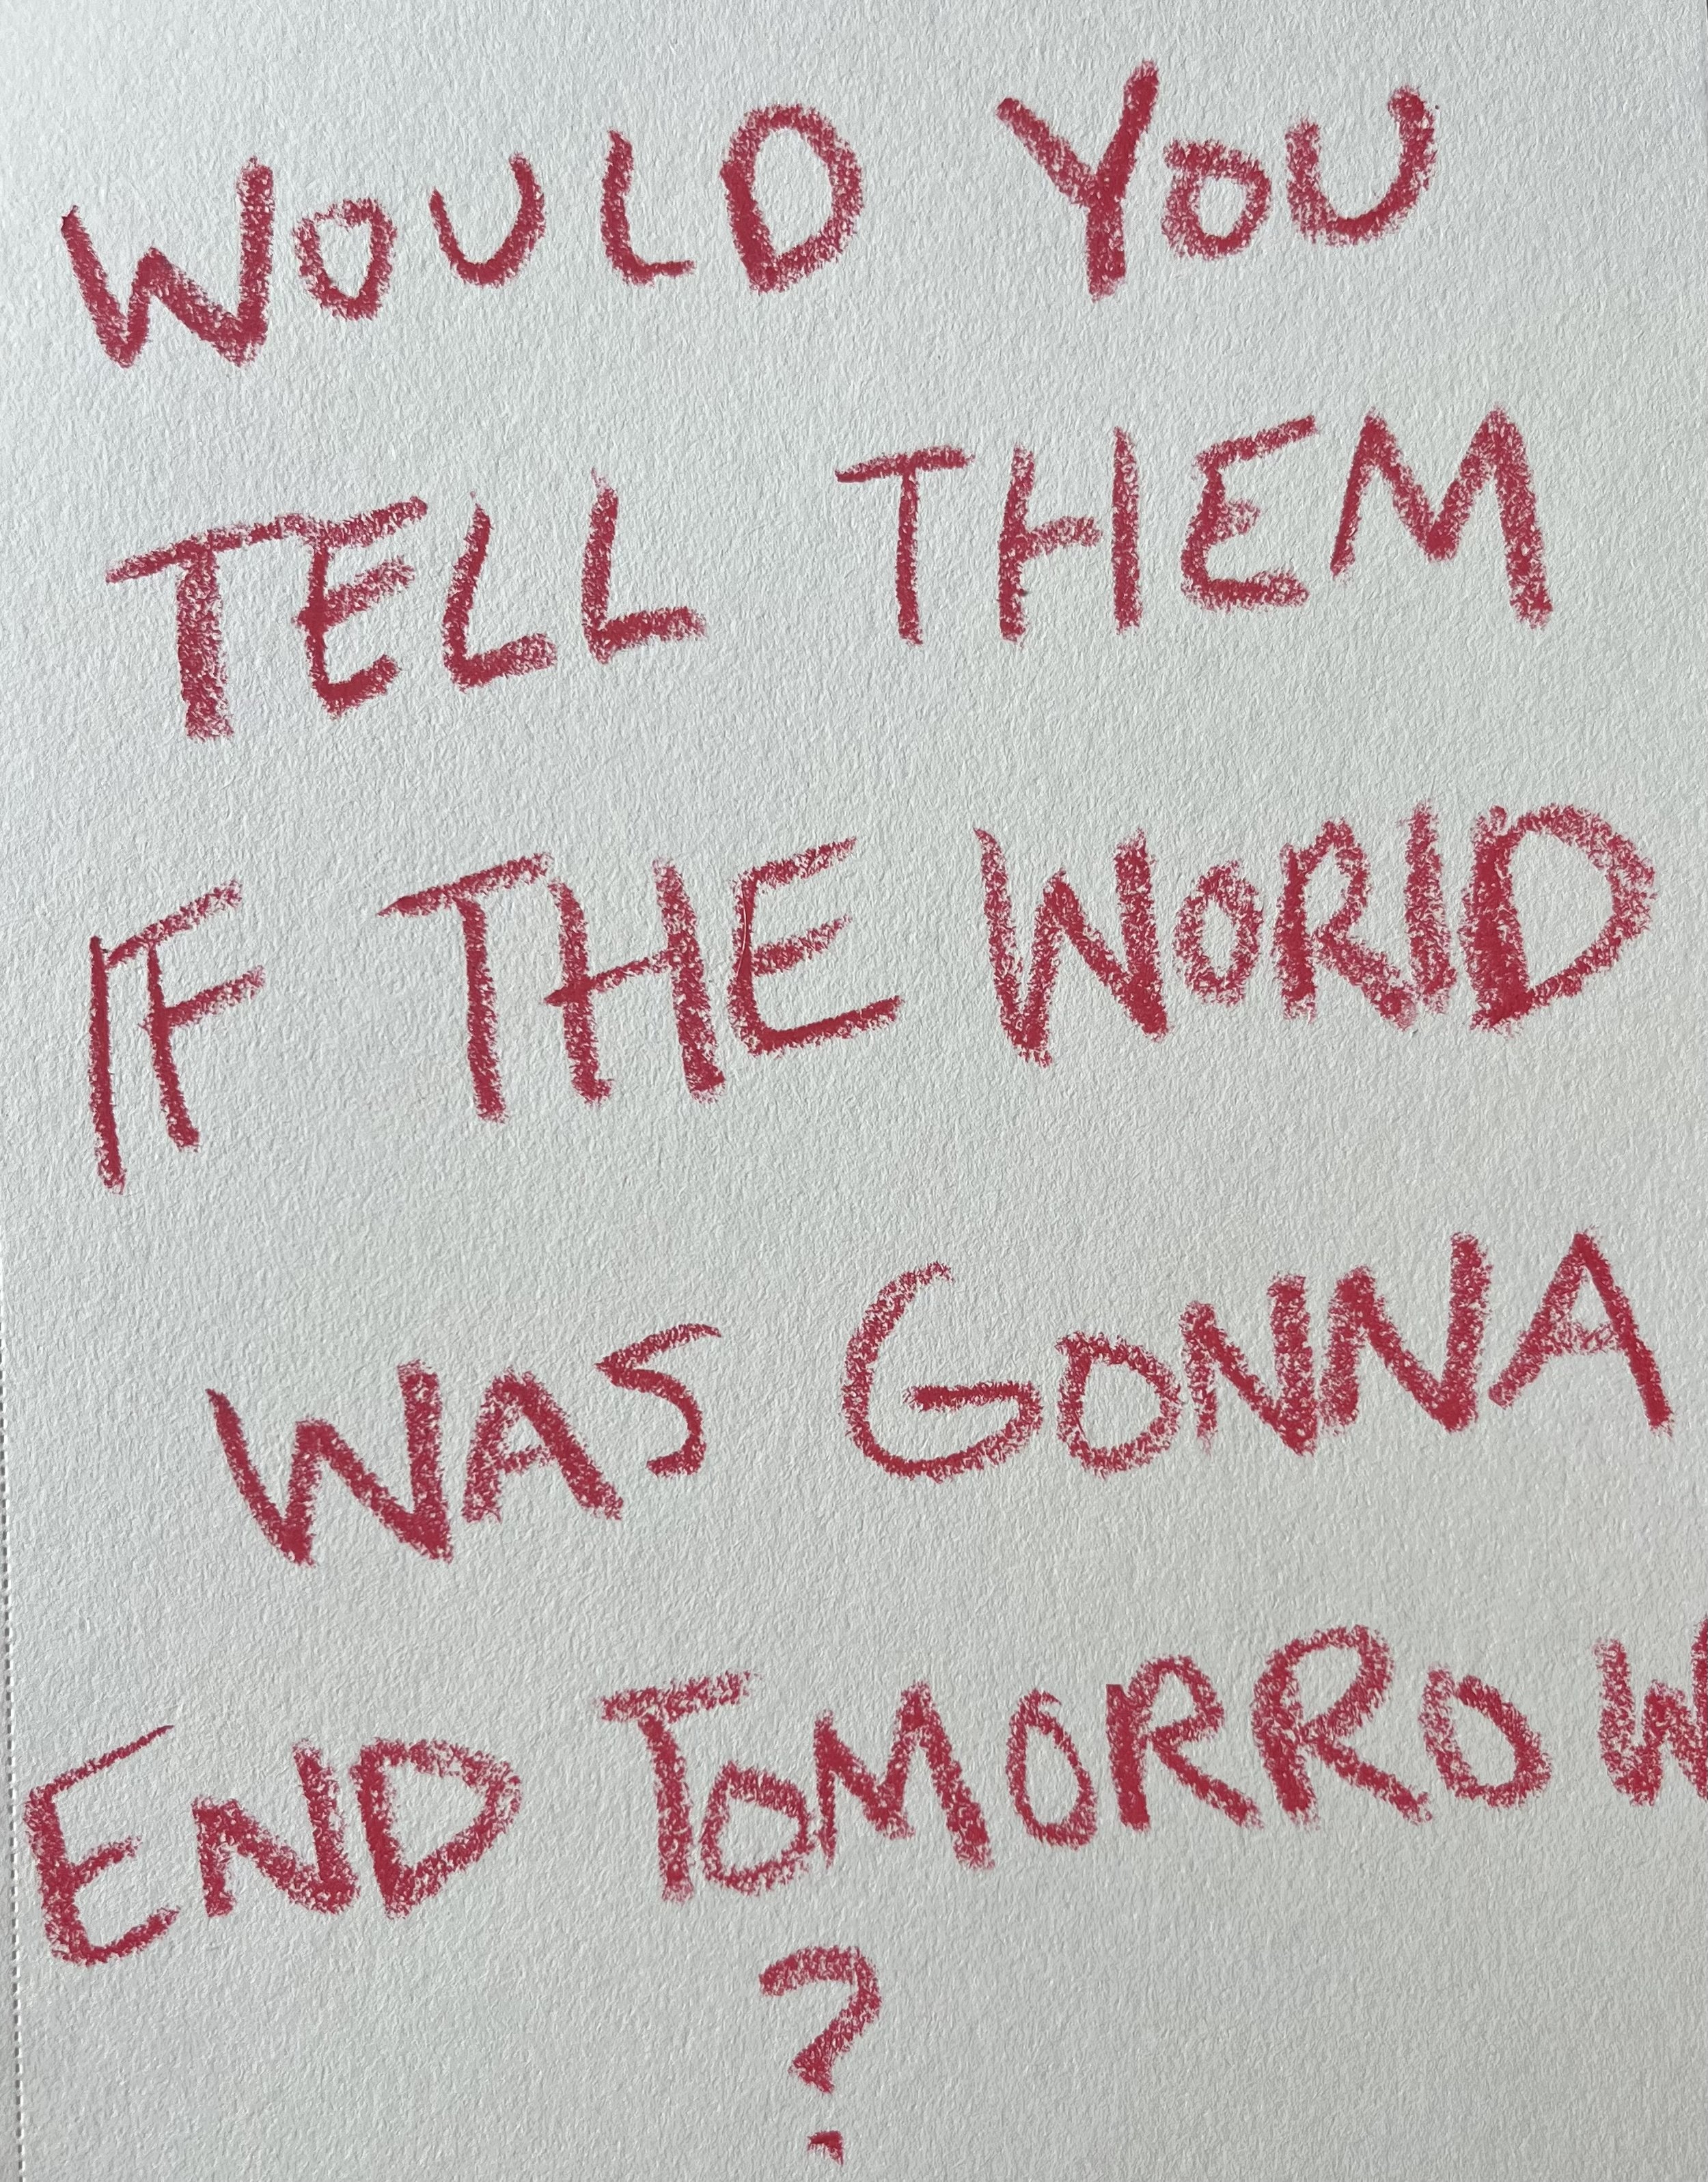 WOULD YOU
TELL THEM
IF THE WORlD
WAS GONNA
END TOMORROW
?